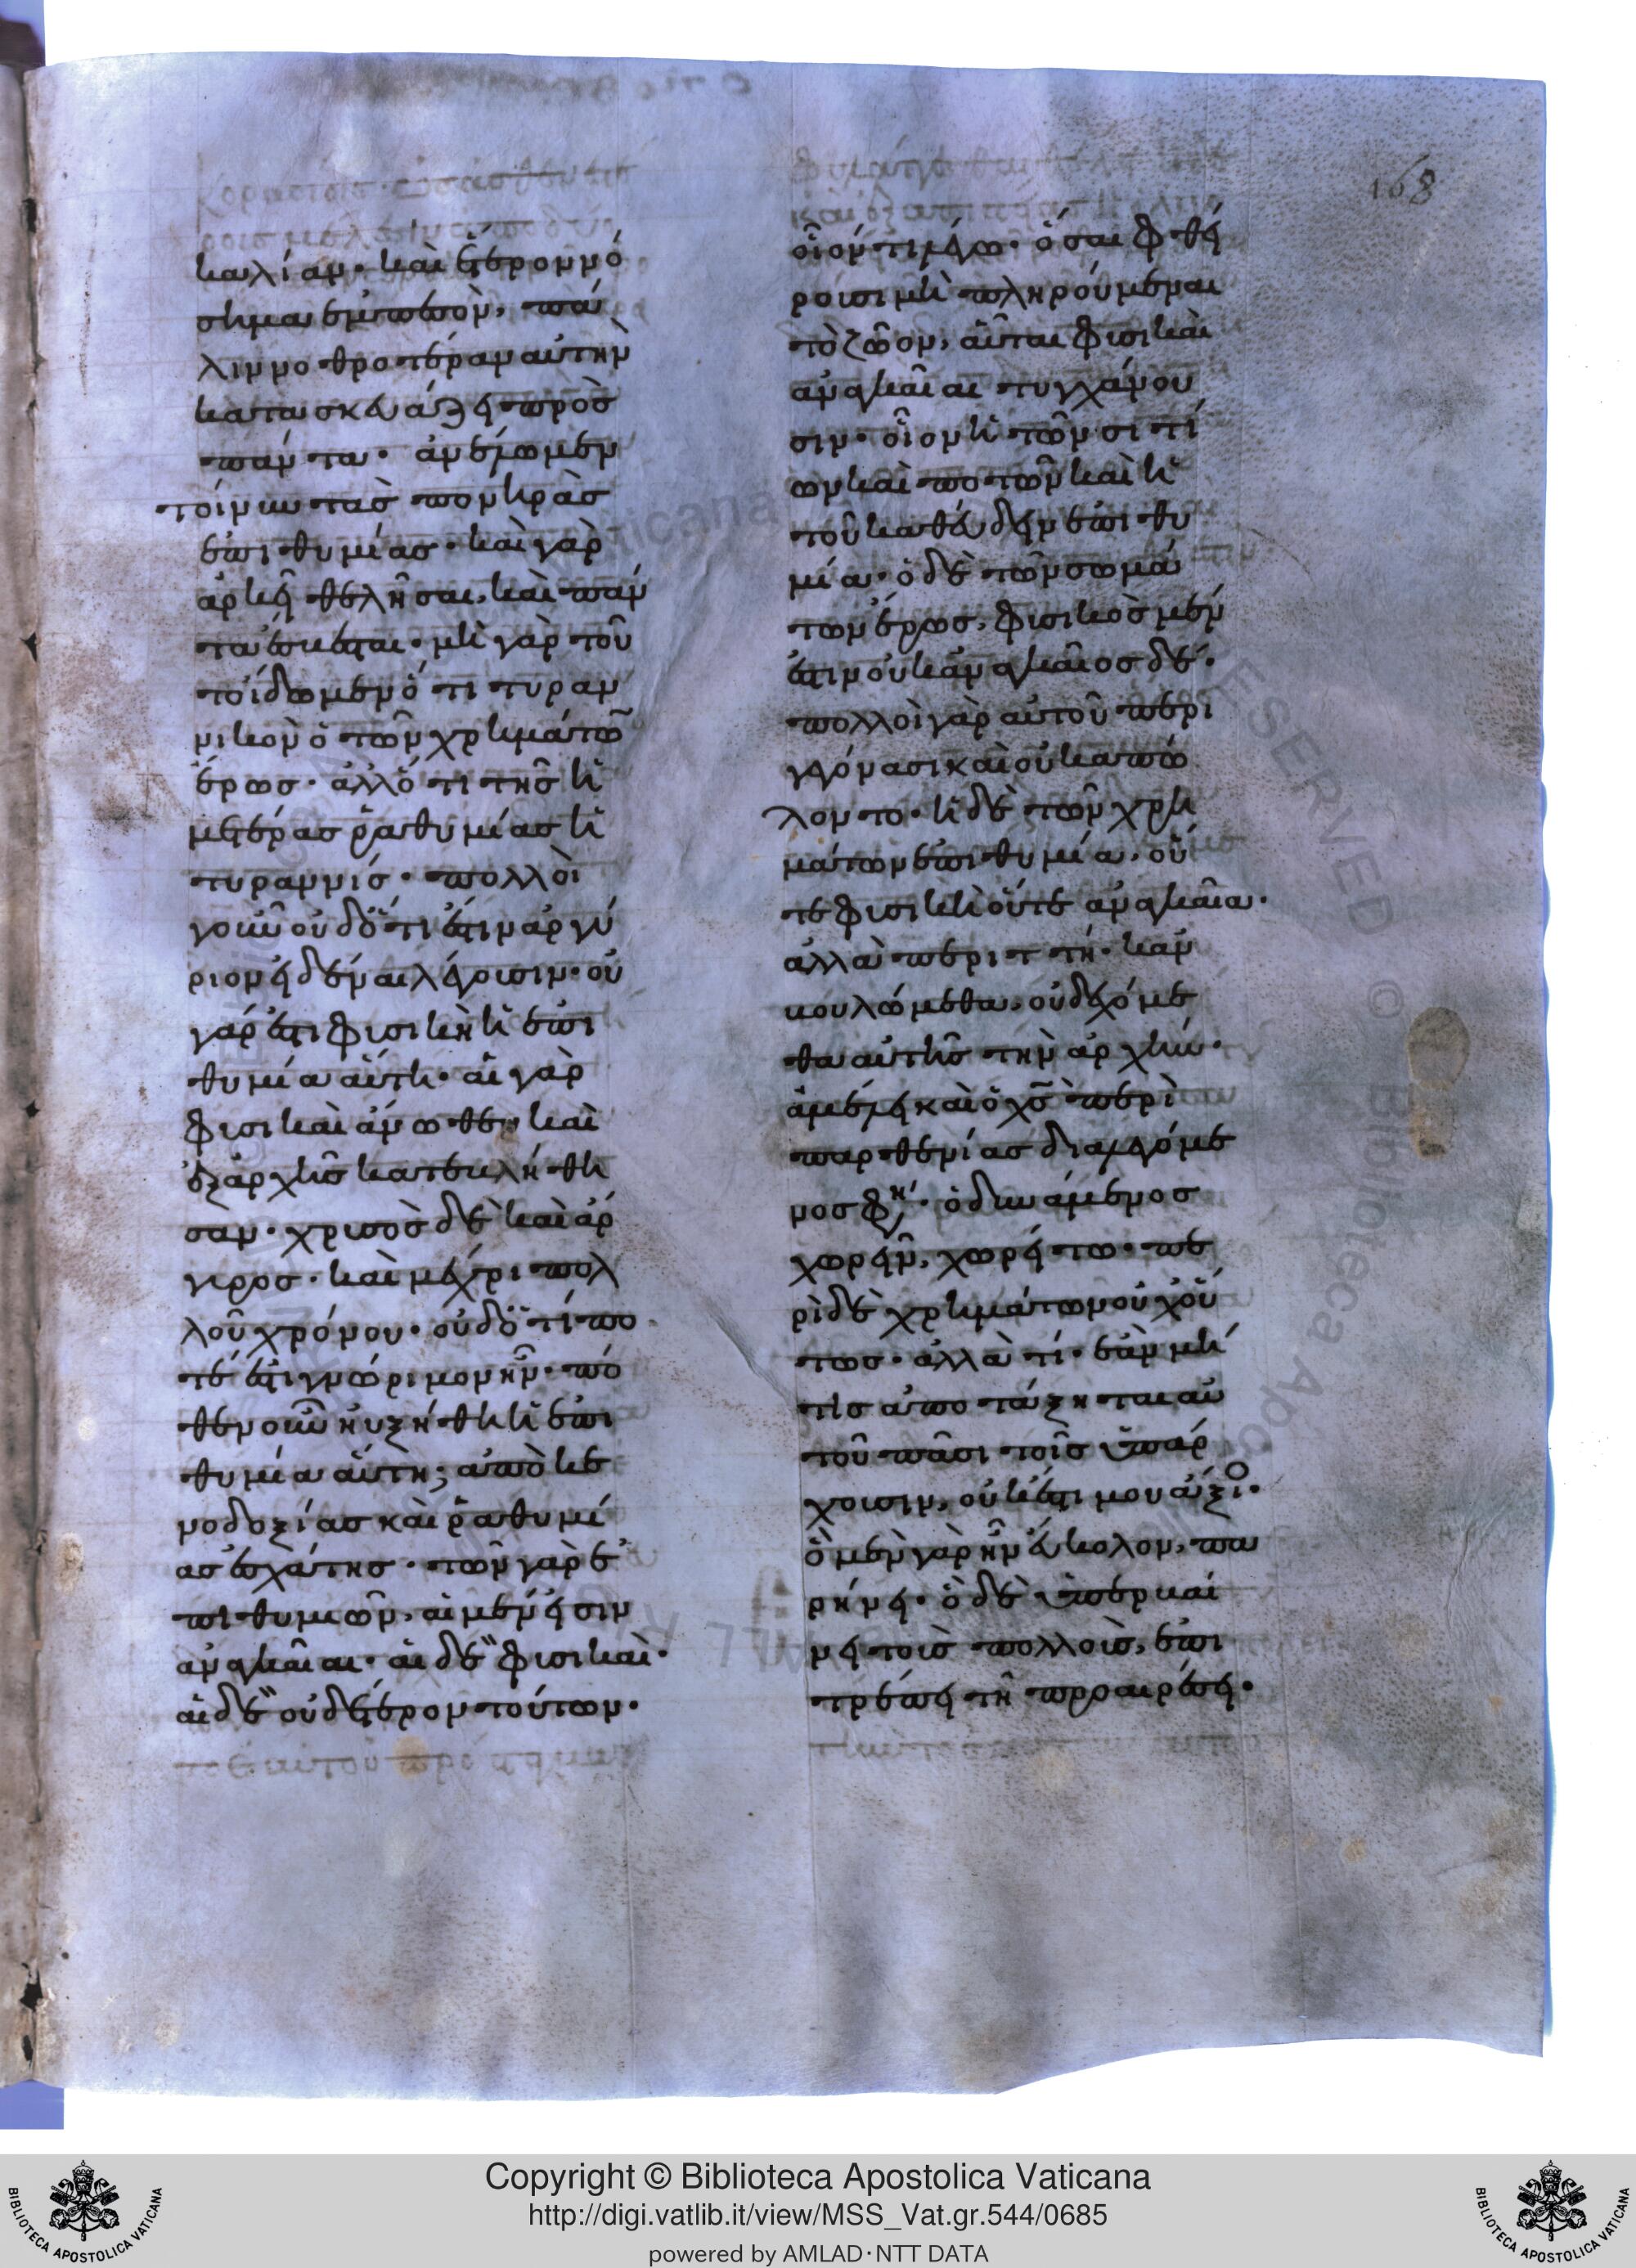 168
καλίαν· καὶ ἕτερον νό
σημα ἐμπεσὸν, πά
λιν νοθροτέραν αὐτὴν
κατασκευάζει πρὸς
πάντα· ἀνέλωμεν
τοίνυν τὰς πονηρὰς
ἐπιθυμίας· καὶ γὰρ
ἀρκεῖ θελῆσαι, καὶ πάν
τα ἕψεται· μὴ γὰρ τοῦ
το ἴδωμεν ὅτι τυραν
νικὸν ὁ τῶν χρημάτω̅
ἔρως· ἀλλ' ὅτι τῆς ἡ
μετέρας ῥαθυμίας ἡ
τυραννίς· πολλοὶ
γοῦν οὐδ' ὅτι ἐστὶν ἀργύ
ριον εἰδέναι λέγουσιν· οὐ
γάρ ἐστι φυσικὴ ἡ ἐπι
θυμία αὕτη· αἱ γὰρ
φυσικαὶ ἄνωθεν καὶ
ἐξ ἀρχῆς κατεβλήθη
σαν· χρυσὸς δὲ καὶ ἄρ
γυρος· καὶ μέχρι πολ
λοῦ χρόνου· οὐδ' ὅ τί πο
τέ ἐστι γνώριμον ἦν· πό
θεν οὖν ηὐξήθη ἡ ἐπι
θυμία αὕτη; ἀπὸ κε
νοδοξίας καὶ ῥαθυμί
ας ἐσχάτης· τῶν γὰρ ἐ
πιθυμιῶν, αἱ μέν εἰσιν
ἀναγκαῖαι· αἱ δὲ φυσικαὶ·
αἱ δὲ οὐδέτερον τούτων·
οἷόν τι λέγω· ὅσαι φθεί
ρουσι μὴ πληρούμεναι
τὸ ζῶον, αὗται φυσικαὶ
ἀναγκαῖαι τυγχάνου
σιν· οἷον ἡ τῶν σιτί
ων καὶ ποτῶν καὶ ἡ
τοῦ καθεύδειν ἐπιθυ
μία· ὁ δὲ τῶν σωμά
των ἔρως, φυσικὸς μέν
ἐστιν οὐκ ἀναγκαῖος δέ·
πολλοὶ γὰρ αὐτοῦ περι
γεγόνασι καὶ οὐκ ἀπώ
λοντο· ἡ δὲ τῶν χρη
μάτων ἐπιθυμία, οὔ
τε φυσικὴ οὔτε ἀναγκαῖα·
ἀλλὰ περιττή· κἂν
βουλώμεθα, οὐ δεχόμε
θα αὐτῆς τὴν ἀρχήν·
ἀμέλει καὶ ὁ χ̅ς̅ περὶ
παρθενίας διαλεγόμε
νος φη· ὁ δυνάμενος
χωρεῖν, χωρείτω· πε
ρὶ δὲ χρημάτων οὐχ οὕ
τως· ἀλλὰ τί· ἐὰν μή
τις ἀποτάξηται αὐ
τοῦ πᾶσι τοῖς ὑπάρ
χουσιν, οὐκ ἔστι μου ἄξιο·
ὃ μὲν γὰρ ἦν εὔκολον, πα
ρήνει· ὃ δὲ ὑπερβαί
νει τοὺς πολλοὺς, ἐπι
τρέπει τῇ προαιρέσει·
Copyright © Biblioteca Apostolica Vaticana
http://digi.vatlib.it/view/MSS_Vat.gr.544/0685
powered by AMLAD·NTT DATA
BIBLIOTECA APOSTOLICA VATICANA
BIBLIOTECA APOSTOLICA VATICANA